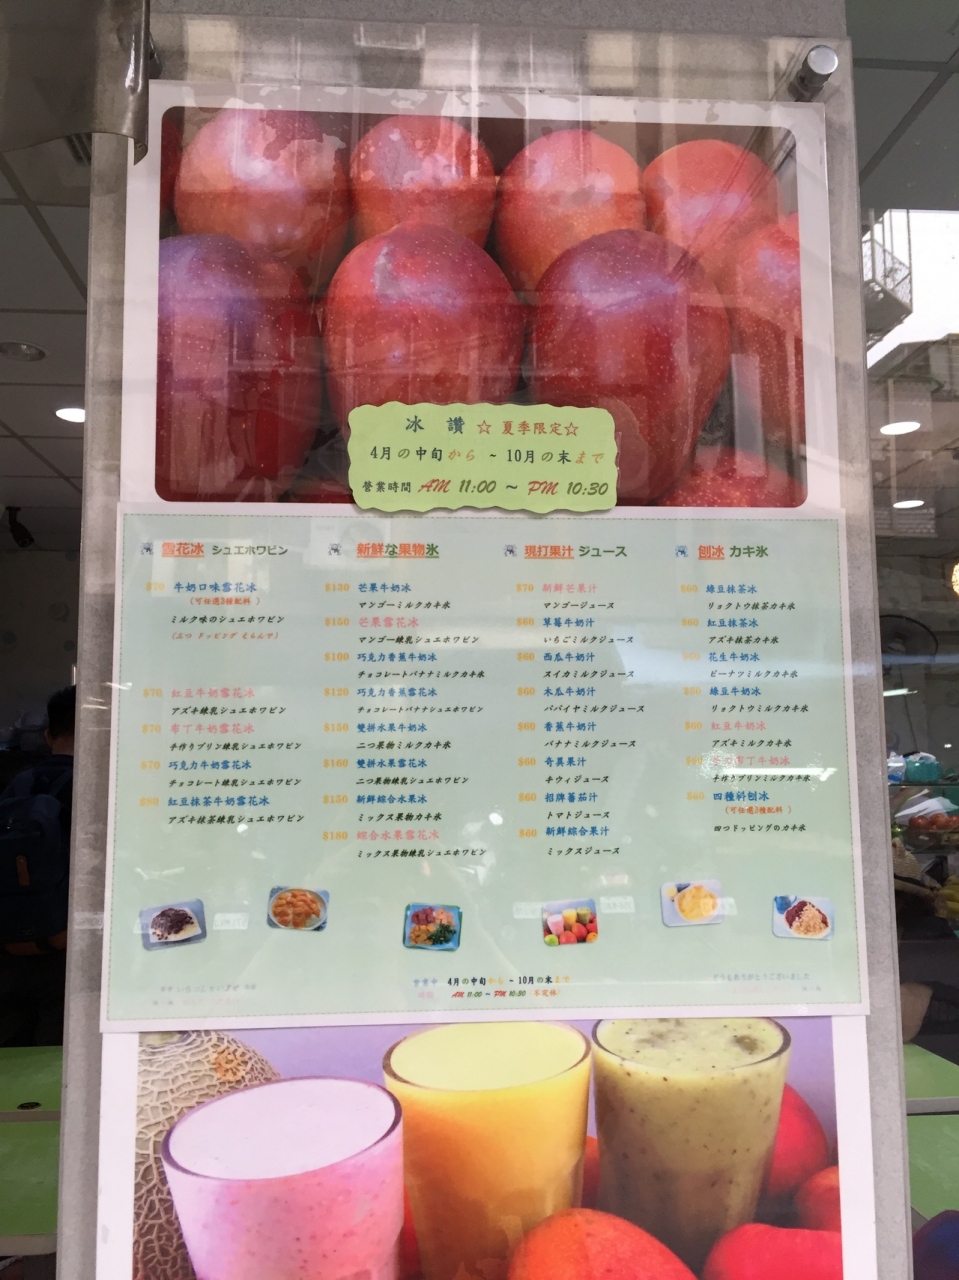 冰 讚 ☆ 夏季限定☆
4月の中旬から ~ 10月の末まで
營業時間 AM 11:00 ～ PM 10:30
雪花冰 シュエホワピン
$70 牛奶口味雪花冰
(可任選3種配料)
ミルク味のシュエホワピン
$70 紅豆牛奶雪花冰
アズキ練乳シュエホワピン
$70 布丁牛奶雪花冰
手作りプリン練乳シュエホワピン
$70 巧克力牛奶雪花冰
チョコレート練乳シュエホワピン
$80 紅豆抹茶牛奶雪花冰
アズキ抹茶練乳シュエホワピン
新鮮な果物氷
$130 芒果牛奶冰
マンゴーミルクカキ氷
$150 芒果雪花冰
マンゴー練乳シュエホワピン
$100 巧克力香蕉牛奶冰
チョコレートバナナミルクカキ氷
$120 巧克力香蕉雪花冰
チョコレートバナナシュエホワピン
$150 雙拼水果牛奶冰
二つ果物ミルクカキ氷
$160 雙拼水果雪花冰
二つ果物練乳シュエホワピン
$150 新鮮綜合水果冰
ミックス果物カキ氷
$180 綜合水果雪花冰
ミックス果物練乳シュエホワピン
現打果汁 ジュース
$70 新鮮芒果汁
マンゴージュース
$60 草莓牛奶汁
いちごミルクジュース
$60 西瓜牛奶汁
スイカミルクジュース
$60 木瓜牛奶汁
パパイヤミルクジュース
$60 香蕉牛奶汁
バナナミルクジュース
$60 奇異果汁
キウィジュース
$60 招牌蕃茄汁
トマトジュース
$60 新鮮綜合果汁
ミックスジュース
刨冰 カキ氷
$60 綠豆抹茶冰
リョクトウ抹茶カキ氷
$60 紅豆抹茶冰
アズキ抹茶カキ氷
花生牛奶冰
ピーナツミルクカキ氷
綠豆牛奶冰
リョクトウミルクカキ氷
$60 紅豆牛奶冰
アズキミルクカキ氷
布丁牛奶冰
手作りプリンミルクカキ氷
四種料刨冰
(可任選3種配料)
四つドッピングのカキ氷
4月の中旬から ~ 10月の末まで
AM 11:00 ~ PM 10:30 不定休